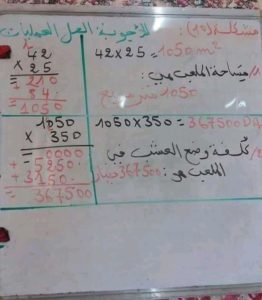 مشكلة (10): الأجوبة العمليات
42
× 25
= 210
+ 84.
= 1050
42 × 25 = 1050 m²
1/ مساحة الملعب هي:
1050 متر مربع
1050
× 350
= 0000
+ 5250.
+ 3150..
= 367500
1050 × 350 = 367500 DA
2/ كلفة وضع العشب في
الملعب هو: 367500 دينار